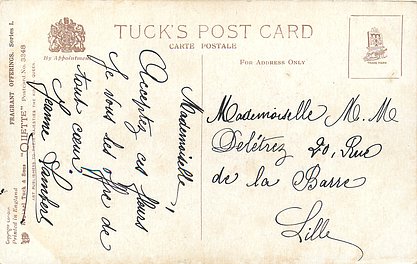 TUCK'S POST CARD
CARTE POSTALE
By Appointment
FOR ADDRESS ONLY
TRADE MARK
FRAGRANT OFFERINGS. Series I.
"OILETTE" Postcard No. 3348
Raphael Tuck & Sons'
Printed in England
Mademoiselle,
Acceptez ces fleurs
Je vous les offre de
tout cœur
Jeanne Lambert
Mademoiselle M. M.
Delétrez 20, Rue
de la Barre
Lille